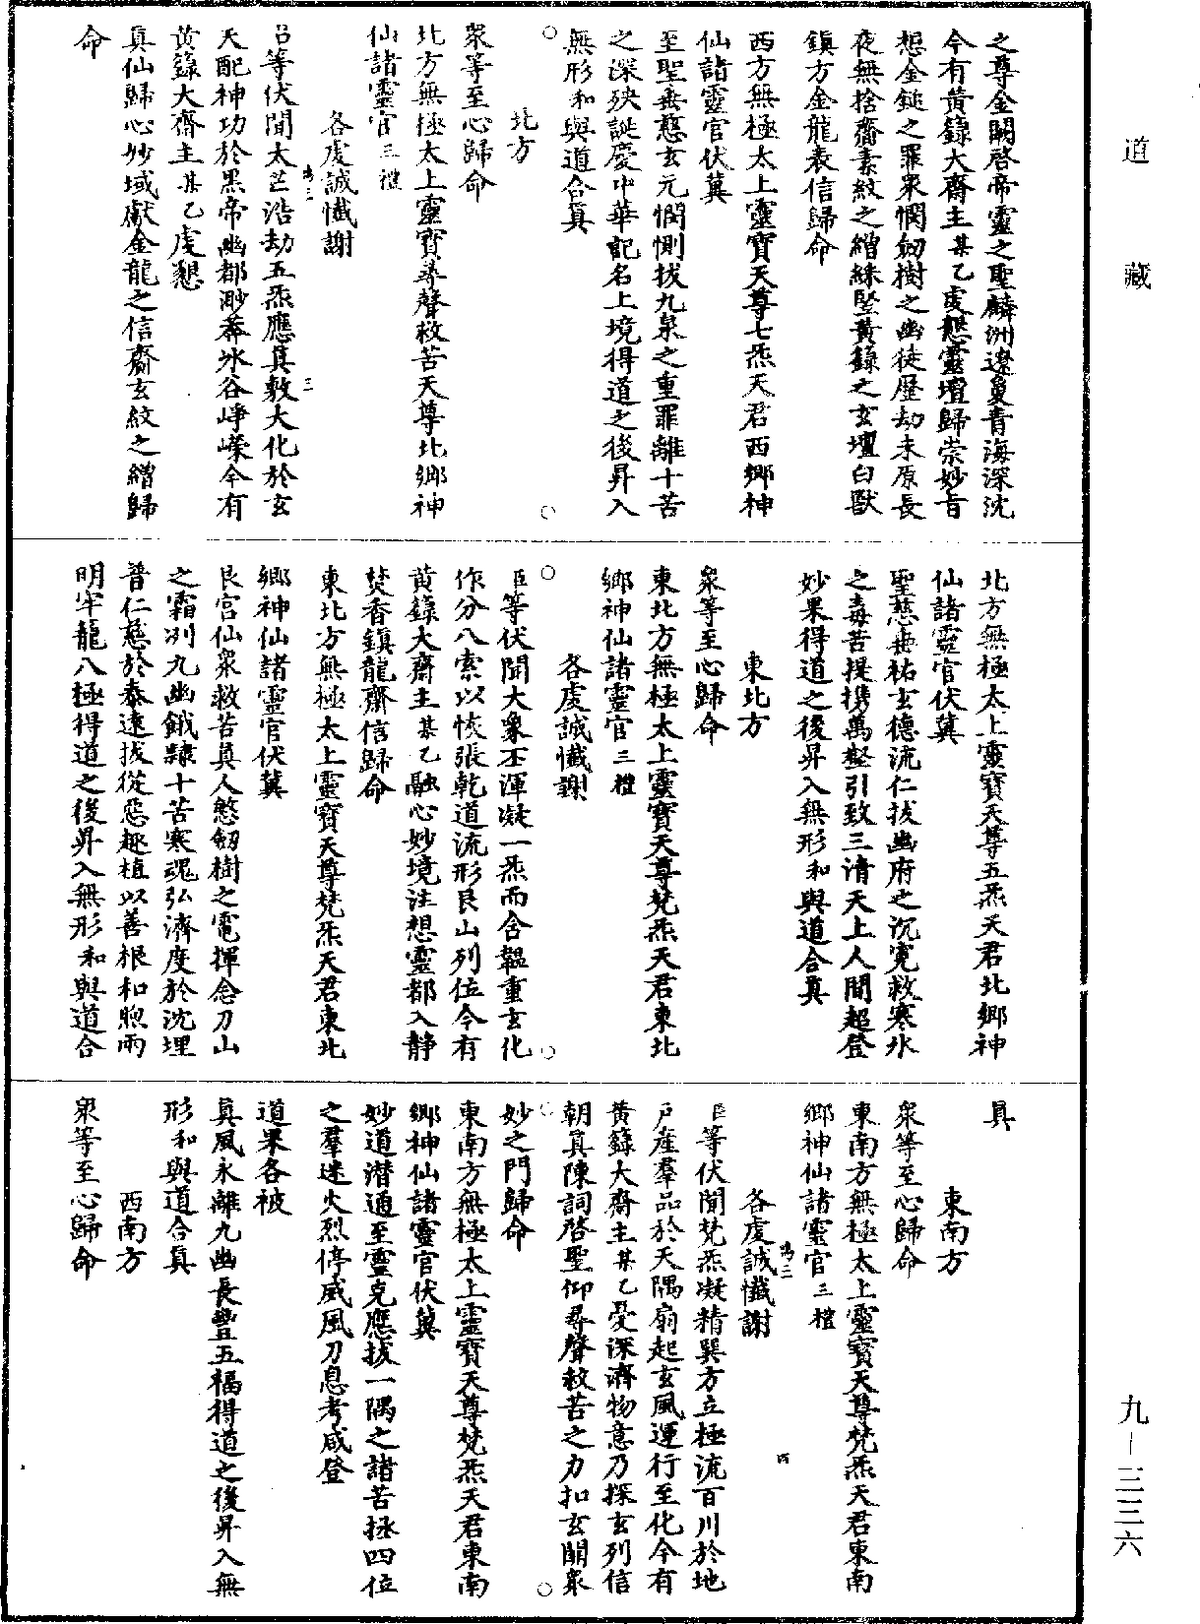 之尊金闕啓帝靈之聖麟洲遼敻青海深沈
今有黃籙大齋主某乙虔懇靈壇歸崇妙旨
想金鎚之罪眾憫劒樹之幽徒歷劫未原長
夜無捨齎素紋之繒綵堅黃籙之玄壇白獸
鎮方金龍表信歸命
西方無極太上靈寶天尊七炁天君西鄉神
仙諸靈官伏冀
至聖垂慈玄元憫惻拔九泉之重罪離十苦
之深殃誕慶中華記名上境得道之後昇入
無形和與道合真
北方
眾等至心歸命
北方無極太上靈寶尋聲救苦天尊北鄉神
仙諸靈官三禮
各虔誠懺謝
臣等伏聞太芒浩劫五炁應真敷大化於玄
天配神功於黑帝幽都渺莽氷谷崢嶸今有
黃籙大齋主某乙虔懇
真仙歸心妙域獻金龍之信齎玄紋之繒歸
命
北方無極太上靈寶天尊五炁天君北鄉神
仙諸靈官伏冀
聖慈垂祐玄德流仁拔幽府之沉寃救寒氷
之毒苦提携萬壑引致三清天上人間超登
妙果得道之後昇入無形和與道合真
東北方
眾等至心歸命
東北方無極太上靈寶天尊梵炁天君東北
鄉神仙諸靈官三禮
各虔誠懺謝
臣等伏聞大象丕渾凝一炁而含韞重玄化
作分八索以恢張乾道流形艮山列位今有
黃籙大齋主某乙融心妙境注想靈都入静
焚香鎮龍齎信歸命
東北方無極太上靈寶天尊梵炁天君東北
鄉神仙諸靈官伏冀
艮宮仙眾救苦真人愍劒樹之電揮念刀山
之霜冽九幽餓隸十苦寒魂弘濟度於沈埋
普仁慈於泰遠拔從惡趣植以善根和煦雨
明牢籠八極得道之後昇入無形和與道合
真
東南方
眾等至心歸命
東南方無極太上靈寶天尊梵炁天君東南
鄉神仙諸靈官三禮
各虔誠懺謝
臣等伏聞梵炁凝精巽方立極流百川於地
戶產羣品於天隅扇起玄風運行至化今有
黃籙大齋主某乙憂深濟物意乃探玄列信
朝真陳詞啓聖仰尋聲救苦之力扣玄關眾
妙之門歸命
東南方無極太上靈寶天尊梵炁天君東南
鄉神仙諸靈官伏冀
妙道潛通至靈克應拔一隅之諸苦拯四位
之羣迷火烈停威風刀息考咸登
道果各被
真風永離九幽長豐五福得道之後昇入無
形和與道合真
西南方
眾等至心歸命
道 藏
九—三三六